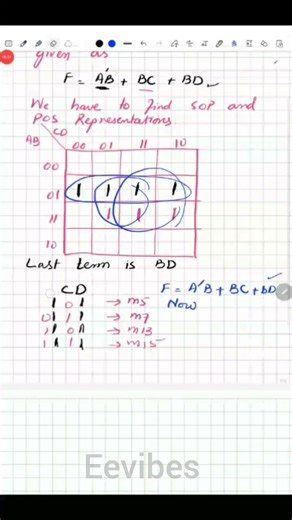 given as
F = A'B + BC + BD
We have to find SOP and
POS Representations
CD
AB 00 01 11 10
00
01 1 1 1 1
11 1 1 1
10
Last term is BD
CD
1 0 1 → m5
0 1 1 1 → m7
1 1 0 1 → m13
1 1 1 1 → m15
F = A'B + BC + BD
Now
Eevibes